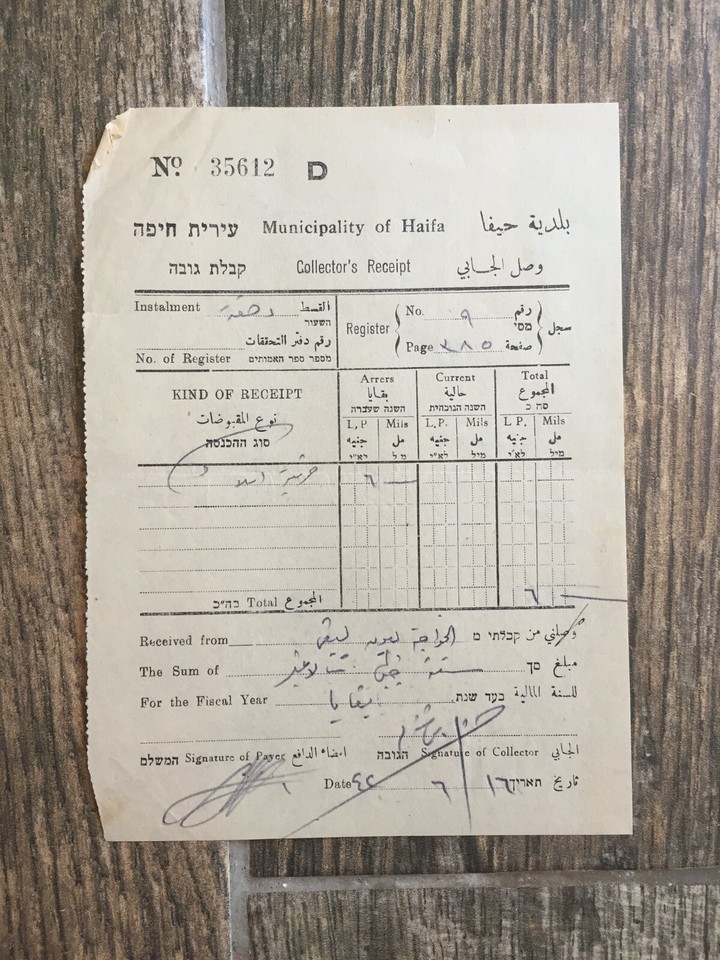 No. 35612 D
עירית חיפה Municipality of Haifa بلدية حيفا
קבלת גובה Collector's Receipt وصل الجابي
Instalment دفعة القسط
השעור
رقم دفتر التحققات
No. of Register מספר ספר האמותים
Register No. ٩ رقم מס׳ سجل
Page ٣٨٥ صفحة
KIND OF RECEIPT
نوع المقبوضات
סוג ההכנסה
Arrers Current Total
بقايا حالية المجموع
השנה שעברה השנה הנוכחית סה כ
L.P Mils L.P. Mils L P. Mils
جنيه مل جنيه مل جنيه مل
לא"י מ ל לא"י מיל לא"י מיל
٦ —
בה"כ Total المجموع ٦ —
Received from الخواجة קבלתי מ وصلني من
The Sum of ستة סך مبلغ
For the Fiscal Year بقايا בעד שנת للسنة المالية
המשלם Signature of Payer امضاء الدافع הגובה Signature of Collector الجابي
Date ١٦ / ٦ / ٤٢ תאריך تاريخ